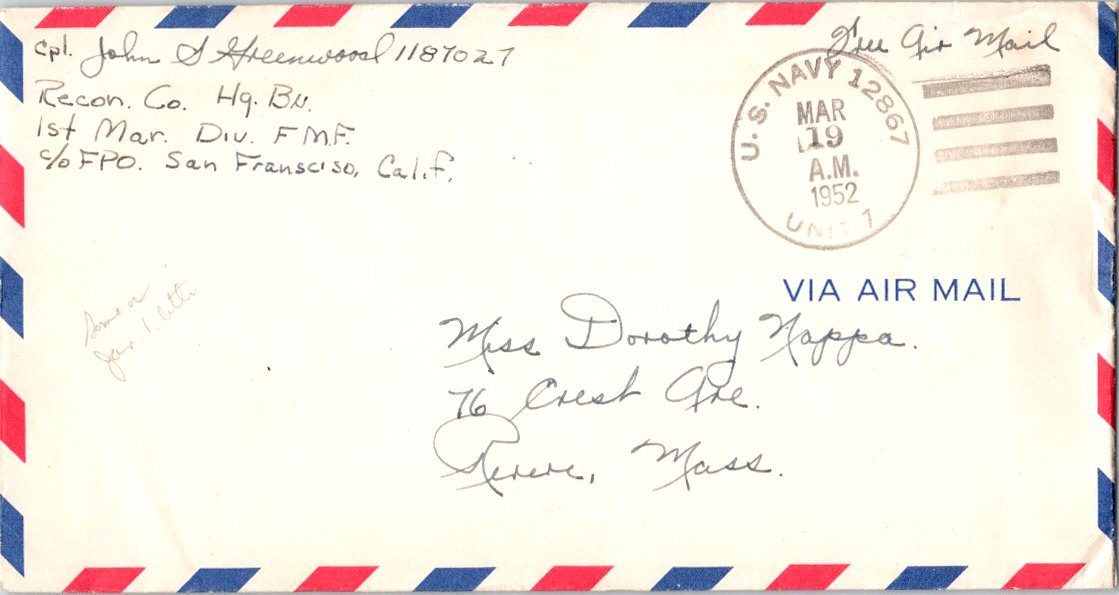 Cpl. John S Greenwood 1187027
Recon. Co. Hq. Bn.
1st Mar. Div. F M.F.
c/o FPO. San Fransciso, Calif.
Free Air Mail
U.S. NAVY 12867
MAR
19
A.M.
1952
UNIT 1
VIA AIR MAIL
Miss Dorothy Nappa.
76 Crest Ave.
Revere, Mass.
Jan. 1